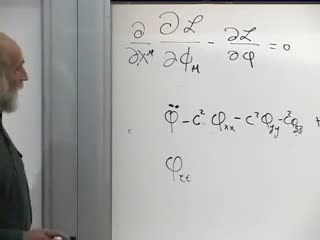 ∂/∂x^μ ∂ℒ/∂φ_μ - ∂ℒ/∂φ = 0
φ̈ - c² φ_xx - c² φ_yy - c² φ_zz +
φ_tt